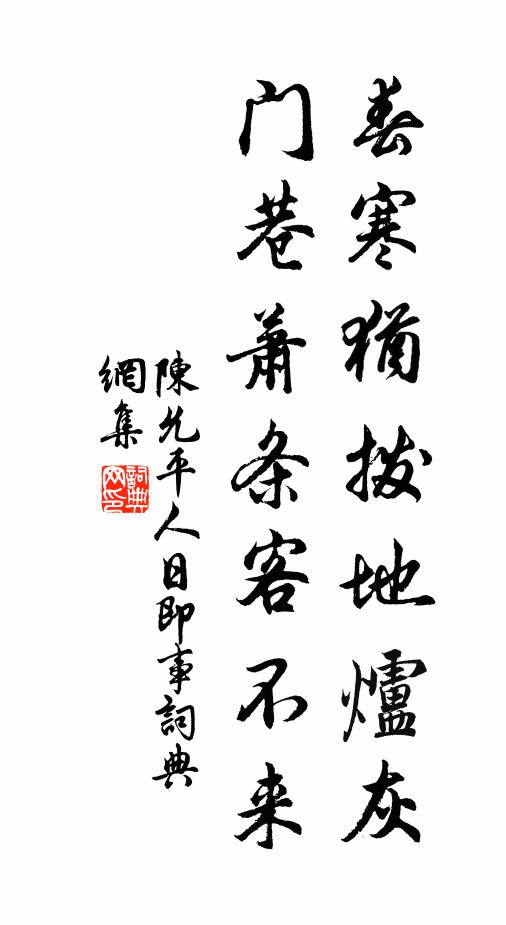 春寒猶撥地爐灰
门巷蕭条客不来
陳允平人日即事詞典
網集
詞典
网印